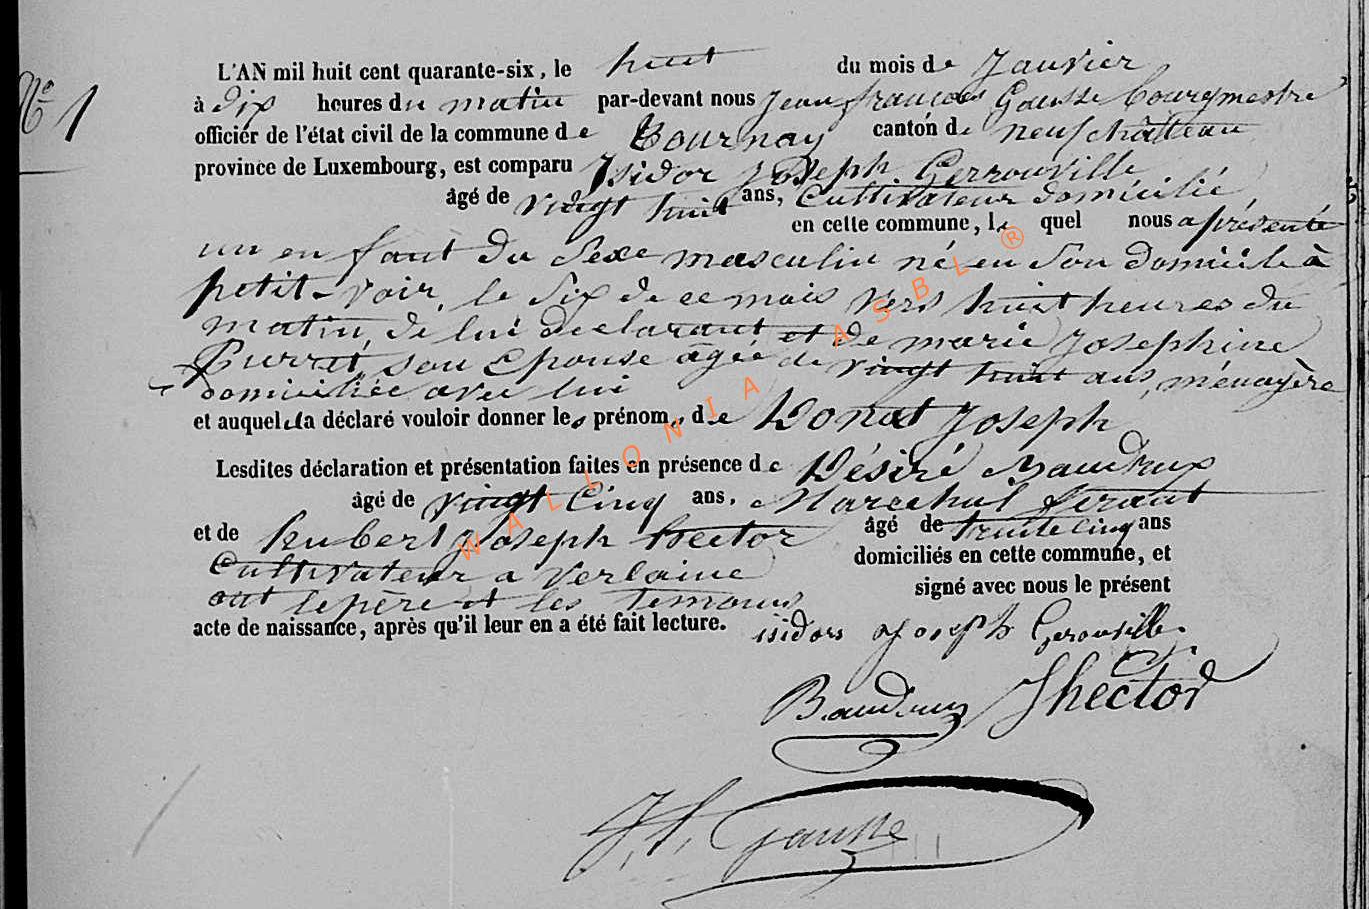 N° 1
L'AN mil huit cent quarante-six, le huit du mois de Janvier
à dix heures du matin par-devant nous Jean françois Gausse bourgmestre
officier de l'état civil de la commune de Tournay canton de neufchâteau
province de Luxembourg, est comparu Isidor Joseph Gerrouville
âgé de vingt huit ans, Cultivateur domicilié
en cette commune, le quel nous a présenté
un enfant du sexe masculin né en son domicile à
petit-voir, le six de ce mois vers huit heures du
matin, de lui declarant et de marie Josephine
son Epouse âgée de vingt huit ans, ménagère
domiciliée avec lui
et auquel il a déclaré vouloir donner les prénoms de Donat Joseph
Lesdites déclaration et présentation faites en présence de Désiré Baudrux
âgé de vingt Cinq ans, Marechal ferant
et de hubert Joseph hector âgé de trente cinq ans
Cultivateur a verlaine domiciliés en cette commune, et
ont le père et les temoins signé avec nous le présent
acte de naissance, après qu'il leur en a été fait lecture.
isidors Joseph Gerouville
Baudrux Jhector
J. f. Gausse
WALLONIA ASBL ®